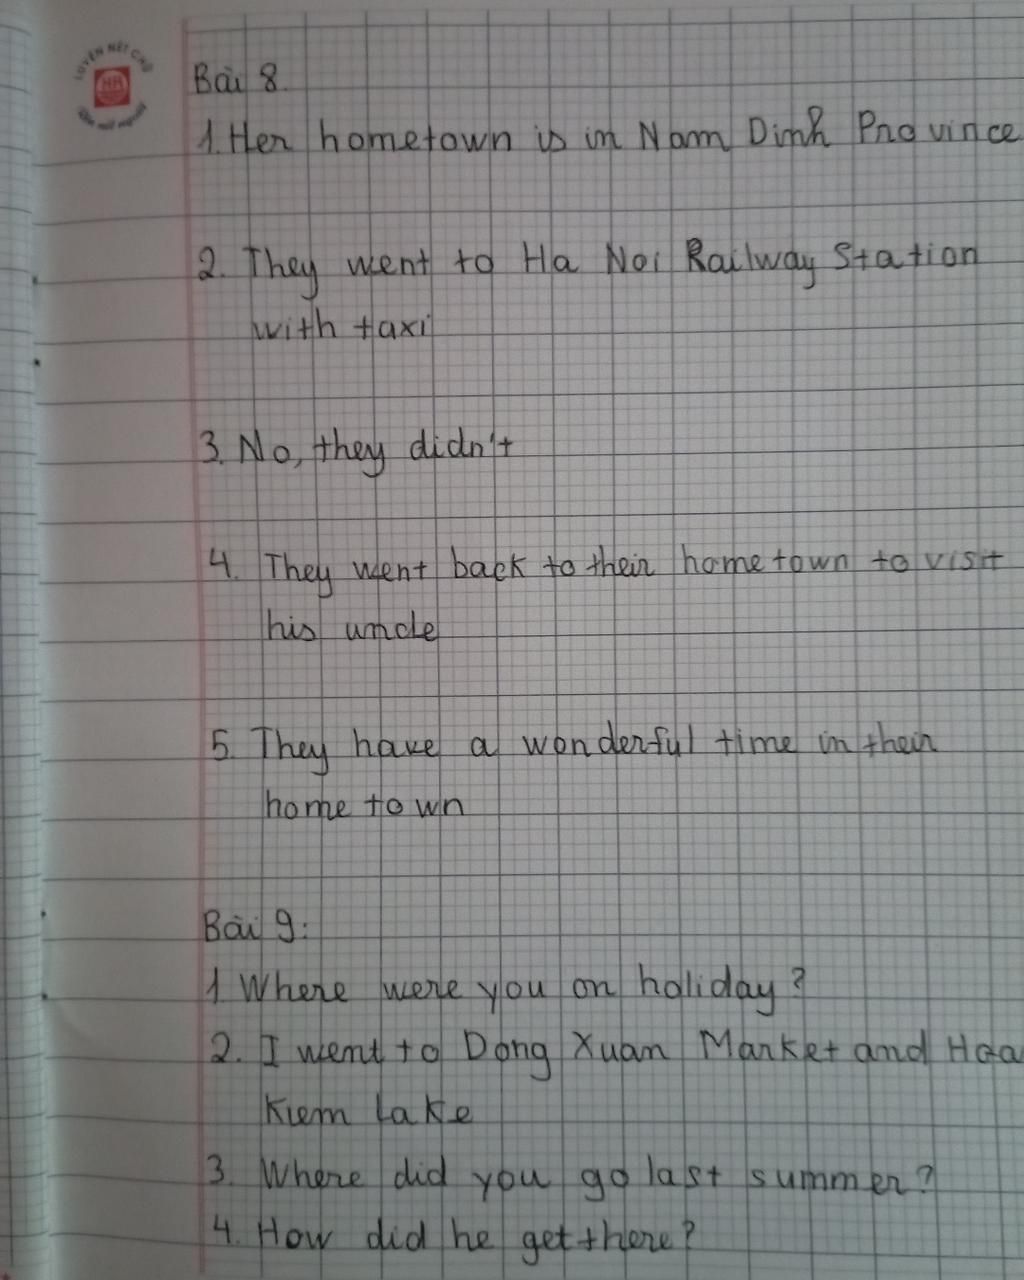 LUYỆN NÉT CHỮ
HH
Bài 8.
1. Her hometown is in Nam Dinh Province
2. They went to Ha Noi Railway Station
with taxi
3. No, they didn't
4. They went back to their hometown to visit
his uncle
5. They have a wonderful time in their
home town
Bài 9:
1 Where were you on holiday?
2. I went to Dong Xuan Market and Hoa
Kiem Lake
3. Where did you go last summer?
4. How did he get there?